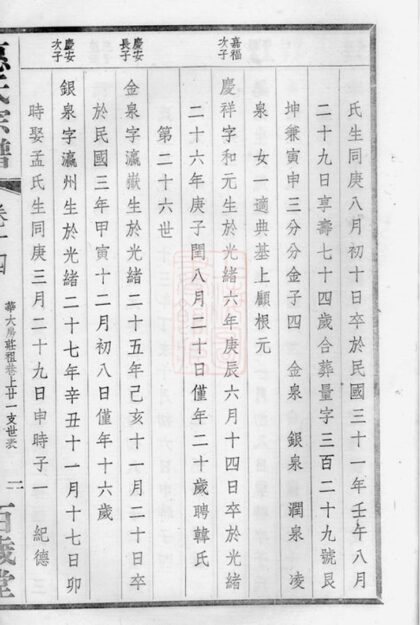 氏生同庚八月初十日卒於民國三十一年壬午八月
二十九日享壽七十四歲合葬量字三百二十九號艮
坤兼寅申三分分金子四 金泉 銀泉 潤泉 凌
泉 女一適典基上顧根元
嘉福次子
慶祥字和元生於光緒六年庚辰六月十四日卒於光緒
二十六年庚子閏八月二十日僅年二十歲聘韓氏
第二十六世
慶安長子
金泉字瀛嶽生於光緒二十五年己亥十一月二十日卒
於民國三年甲寅十二月初八日僅年十六歲
慶安次子
銀泉字瀛州生於光緒二十七年辛丑十一月十七日卯
時娶孟氏生同庚三月二十九日申時子一 紀德 三
氏宗譜 卷十四
華大房莊祖巷上廿一支世表
百歲堂